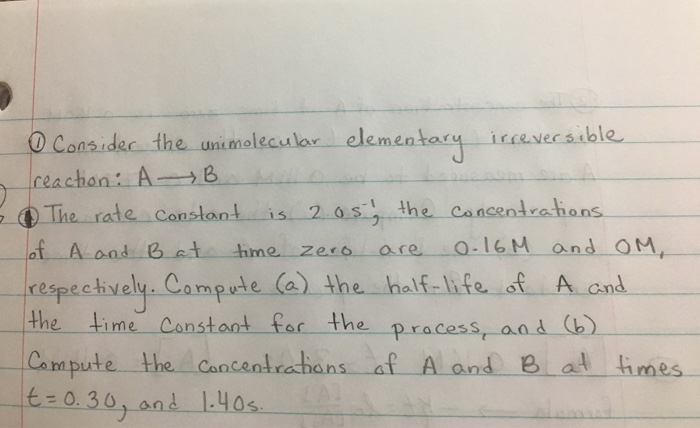 ① Consider the unimolecular elementary irreversible
reaction: A → B
The rate constant is 2.0 s⁻¹, the concentrations
of A and B at time zero are 0.16M and 0M,
respectively. Compute (a) the half-life of A and
the time constant for the process, and (b)
Compute the concentrations of A and B at times
t = 0.30, and 1.40s.